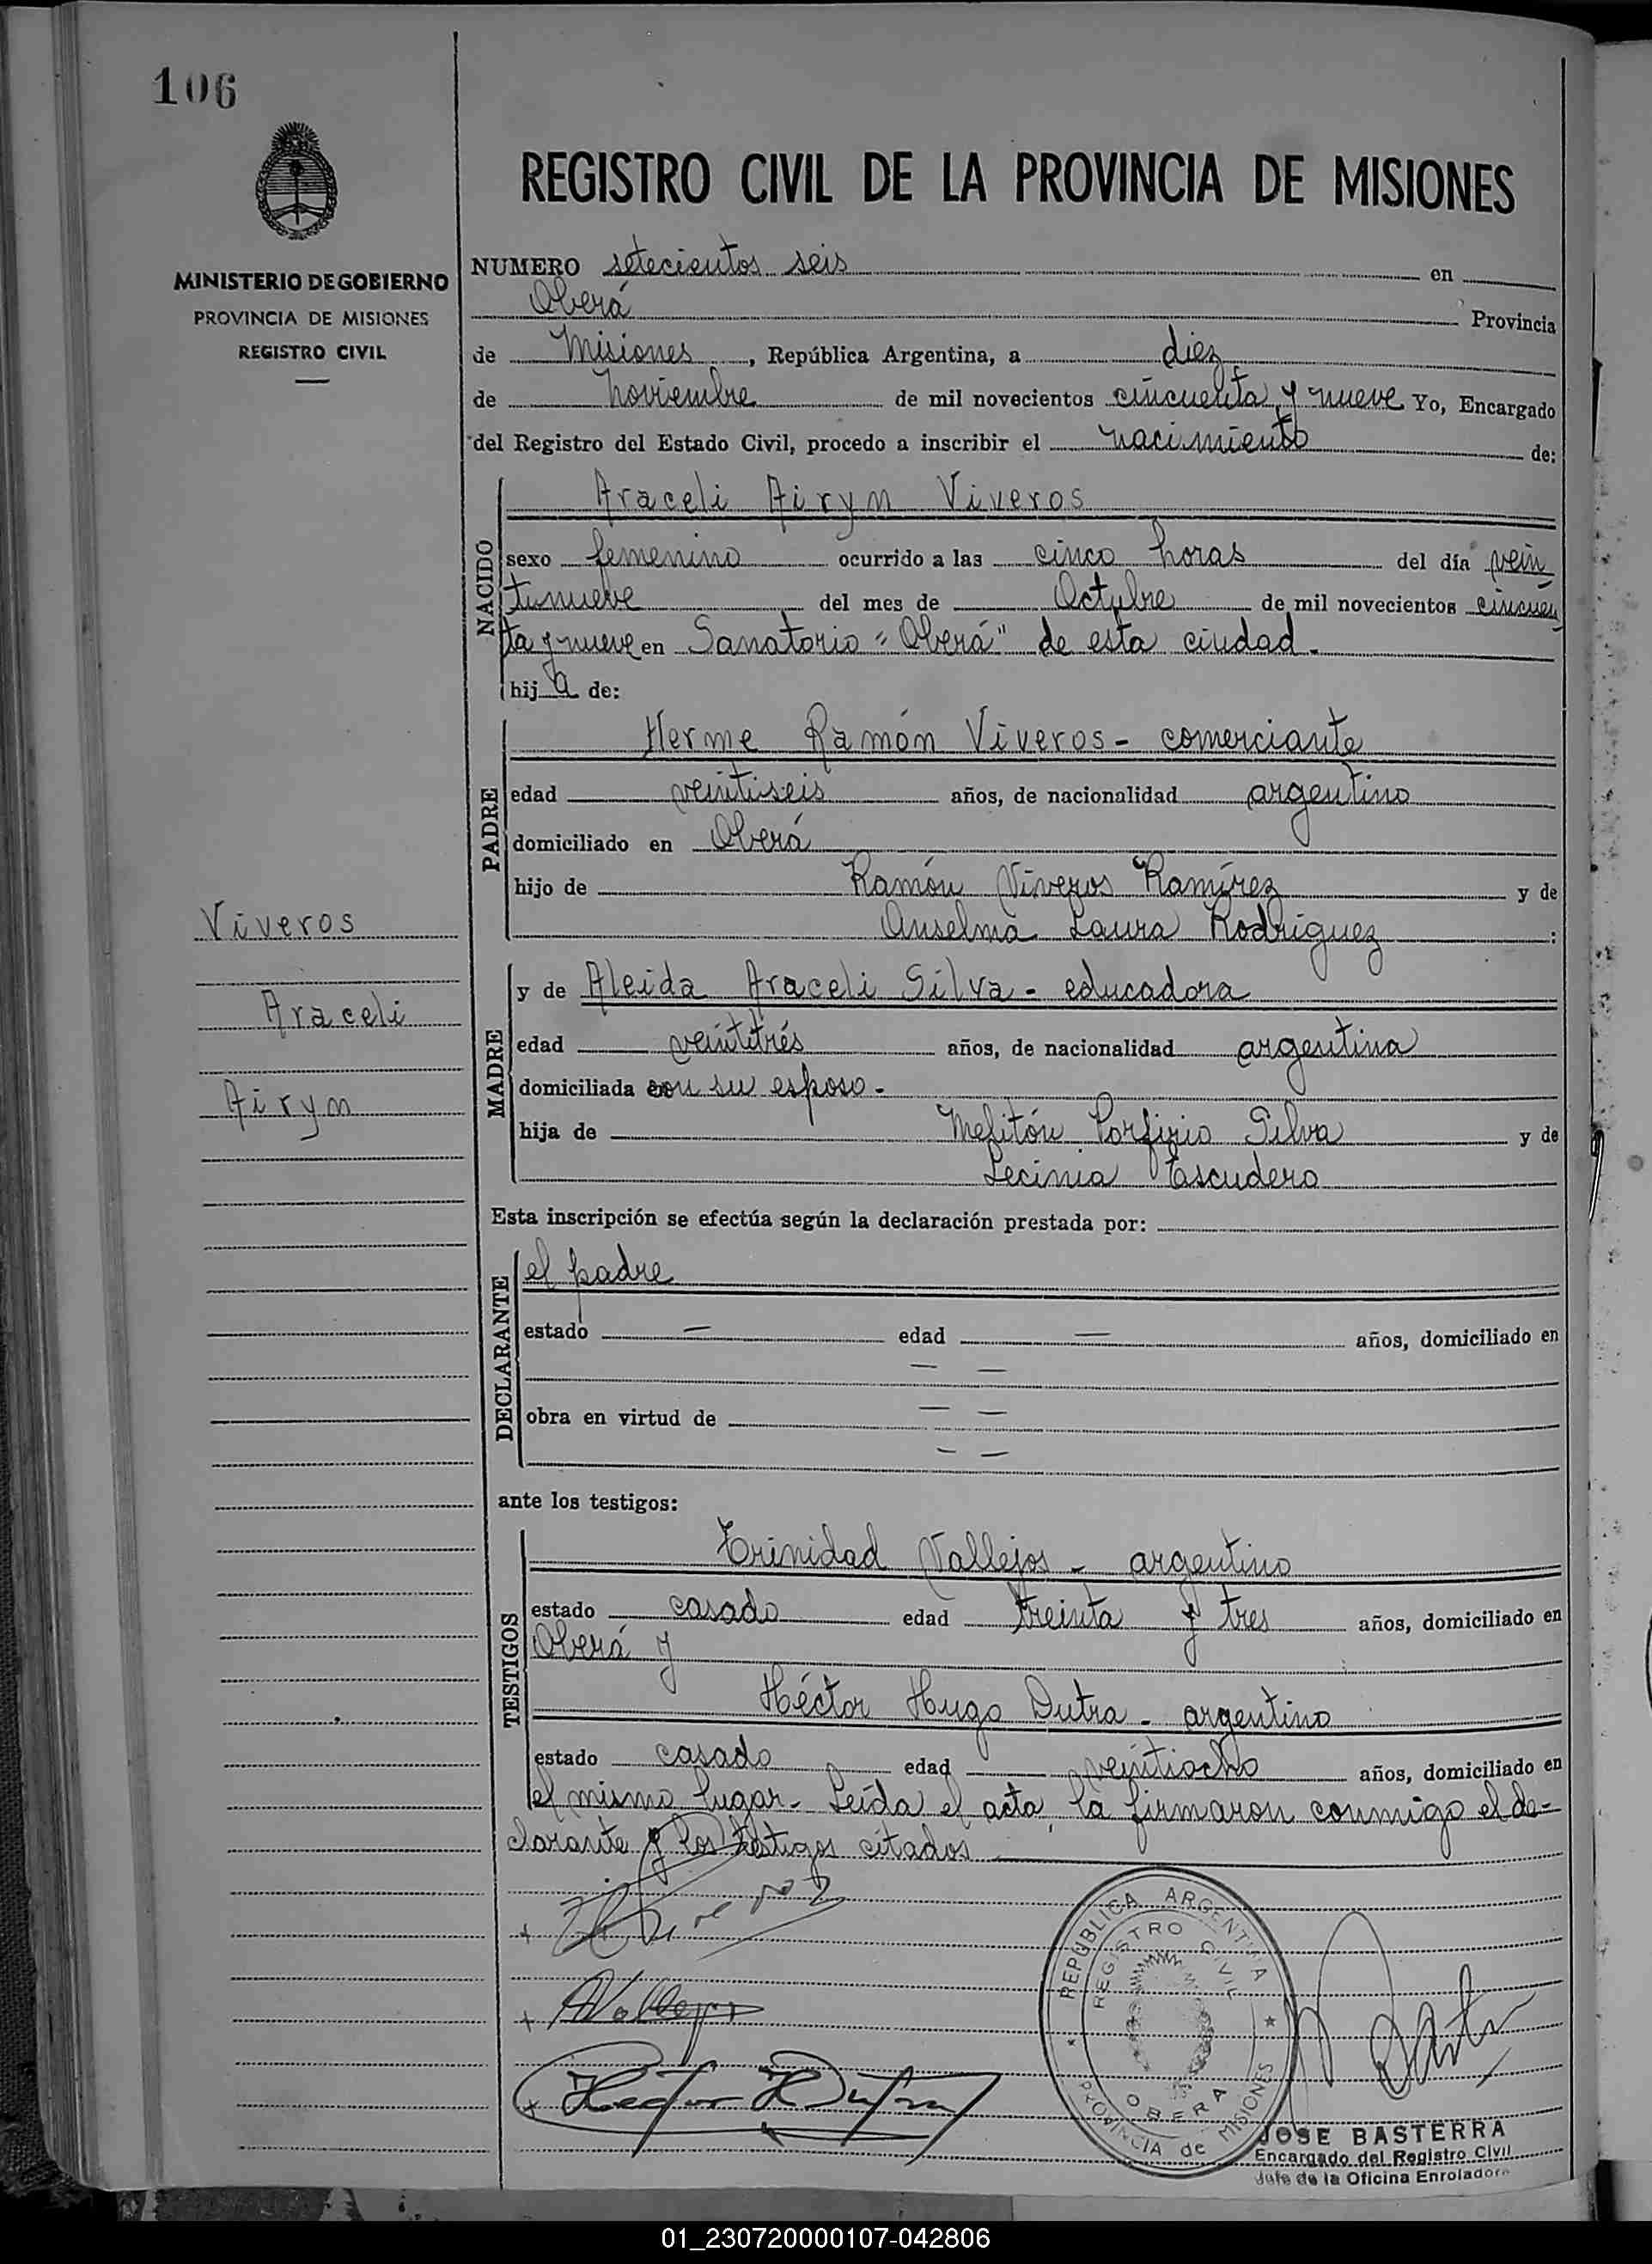 106
MINISTERIO DE GOBIERNO
PROVINCIA DE MISIONES
REGISTRO CIVIL
REGISTRO CIVIL DE LA PROVINCIA DE MISIONES
NUMERO setecientos seis en
Oberá Provincia
de Misiones, República Argentina, a diez
de Noviembre de mil novecientos cincuenta y nueve Yo, Encargado
del Registro del Estado Civil, procedo a inscribir el nacimiento de:
NACIDO
Araceli Airym Viveros
sexo femenino ocurrido a las cinco horas del día vein
tinueve del mes de Octubre de mil novecientos cincuen
ta y nueve en Sanatorio "Oberá" de esta ciudad.
hija de:
PADRE
Herme Ramón Viveros - comerciante
edad veintiseis años, de nacionalidad argentino
domiciliado en Oberá
hijo de Ramón Viveros Ramírez y de
Anselma Laura Rodriguez :
Viveros
Araceli
Airym
MADRE
y de Aleida Araceli Silva - educadora
edad veintitrés años, de nacionalidad argentina
domiciliada con su esposo -
hija de Melitón Porfirio Silva y de
Lecinia Escudero
Esta inscripción se efectúa según la declaración prestada por:
DECLARANTE
el padre
estado — edad — años, domiciliado en
— —
obra en virtud de — —
— —
ante los testigos:
TESTIGOS
Trinidad Vallejos - argentino
estado casado edad treinta y tres años, domiciliado en
Oberá y
Héctor Hugo Dutra - argentino
estado casado edad veintiocho años, domiciliado en
el mismo lugar - Leída el acta, la firmaron conmigo el de-
clarante y los testigos citados
REPÚBLICA ARGENTINA
REGISTRO CIVIL
OBERA
PROVINCIA de MISIONES
+ Viveros
+ Vallejos
+ Hector H Dutra
JOSE BASTERRA
Encargado del Registro Civil
Jefe de la Oficina Enroladora
01_230720000107-042806